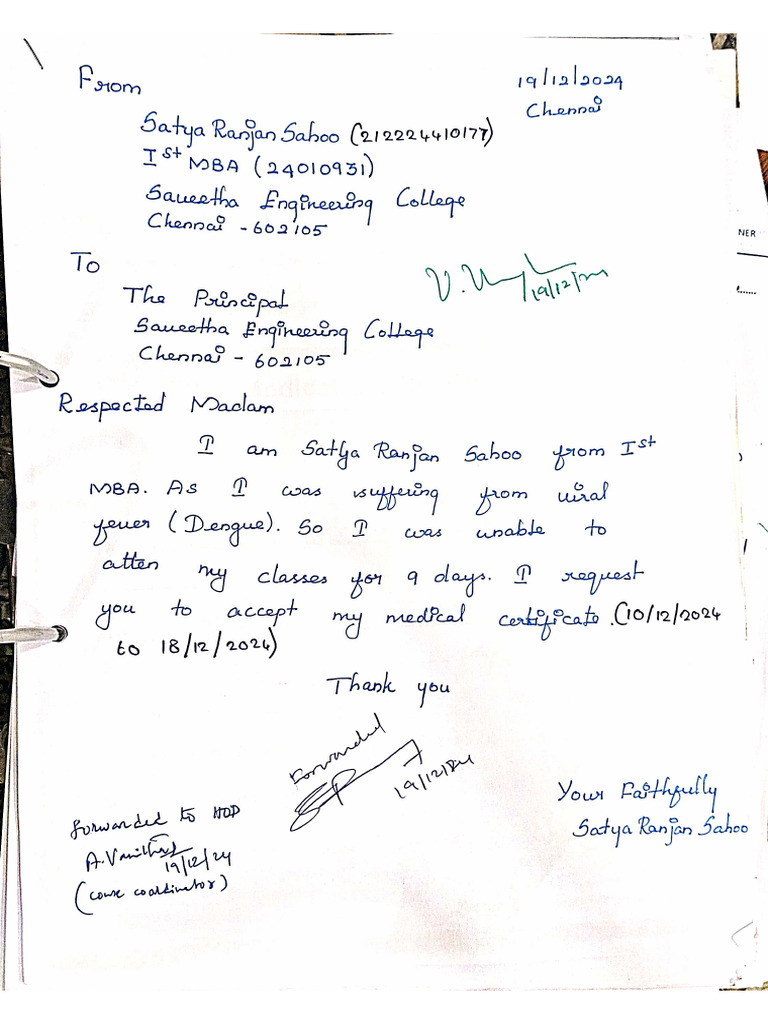 From
19/12/2024
Chennai
Satya Ranjan Sahoo (212224410177)
Ist MBA (24010931)
Saveetha Engineering College
Chennai - 602105
To
19/12/24
The Principal
Saveetha Engineering College
Chennai - 602105
Respected Madam
I am Satya Ranjan Sahoo from Ist
MBA. As I was suffering from viral
fever (Dengue). So I was unable to
atten my classes for 9 days. I request
you to accept my medical certificate. (10/12/2024
to 18/12/2024)
Thank you
Forwarded
19/12/24
Your Faithfully
Satya Ranjan Sahoo
forwarded to HOD
19/12/24
(course coordinator)
NER